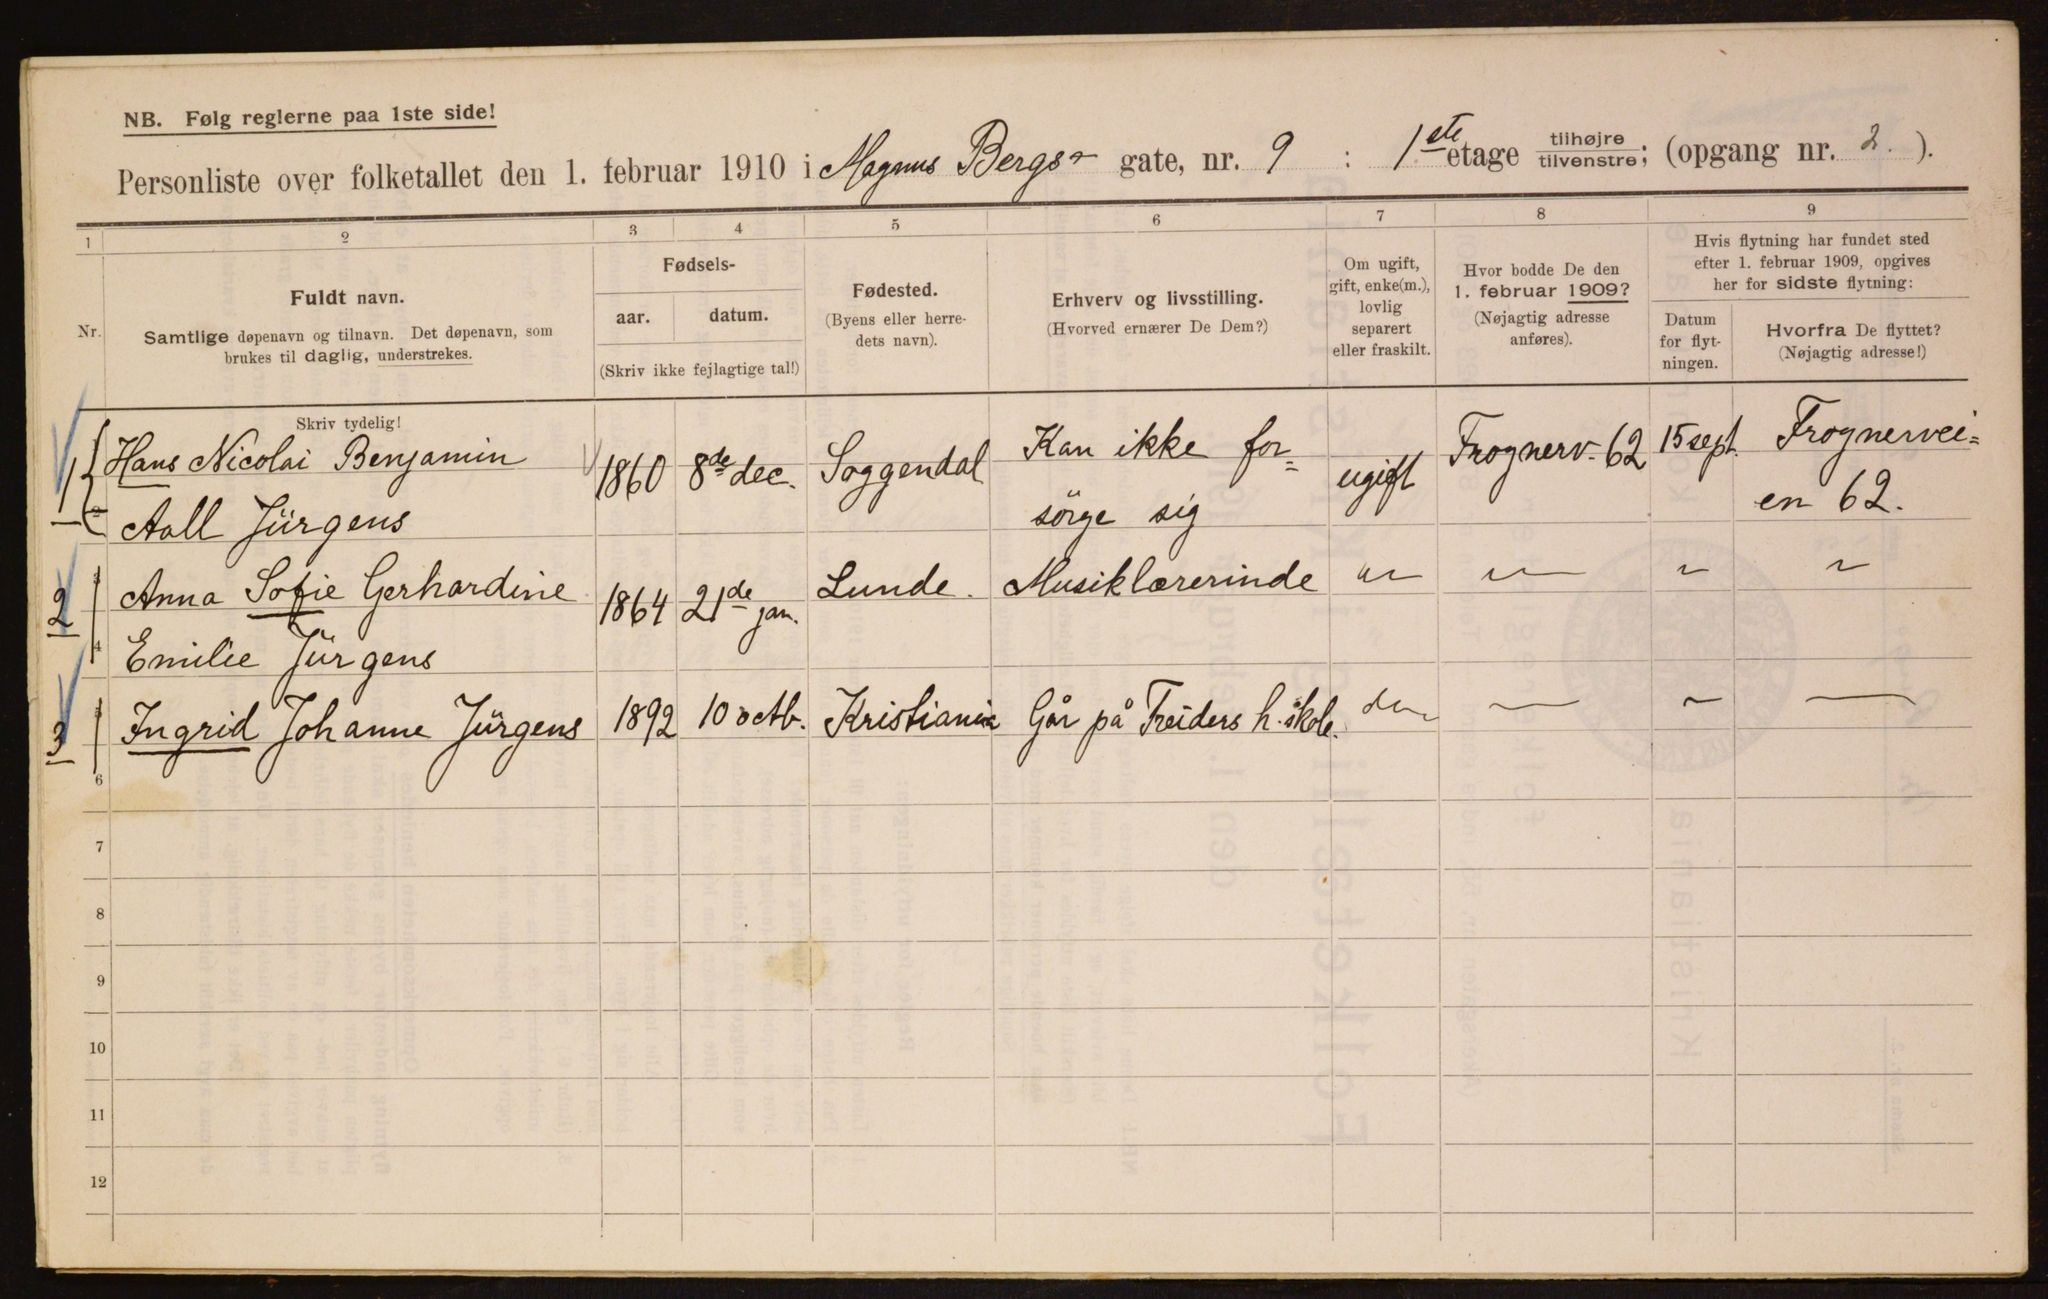 NB. Følg reglerne paa 1ste side!
Personliste over folketallet den 1. februar 1910 i Magnus Bergs gate, nr. 9 : 1ste etage tilhøjre tilvenstre; (opgang nr. 2. ).
1 2 3 4 5 6 7 8 9
Nr.
Fuldt navn.
Samtlige døpenavn og tilnavn. Det døpenavn, som
brukes til daglig, understrekes.
Fødsels-
aar. datum.
(Skriv ikke fejlagtige tal!)
Fødested.
(Byens eller herre-
dets navn).
Erhverv og livsstilling.
(Hvorved ernærer De Dem?)
Om ugift,
gift, enke(m.),
lovlig
separert
eller fraskilt.
Hvor bodde De den
1. februar 1909?
(Nøjagtig adresse
anføres).
Hvis flytning har fundet sted
efter 1. februar 1909, opgives
her for sidste flytning:
Datum
for flyt-
ningen.
Hvorfra De flyttet?
(Nøjagtig adresse!)
Skriv tydelig!
1 Hans Nicolai Benjamin 1860 8de dec. Soggendal Kan ikke for= ugift Frognerv. 62 15 sept. Frognervei=
2 Aall Jürgens sörge sig en 62.
2 3 Anna Sofie Gerhardine 1864 21de jan. Lunde. Musiklærerinde
4 Emilie Jürgens
3 5 Ingrid Johanne Jürgens 1892 10 octb. Kristiania Går på Freiders h. skole.
6
7
8
9
10
11
12